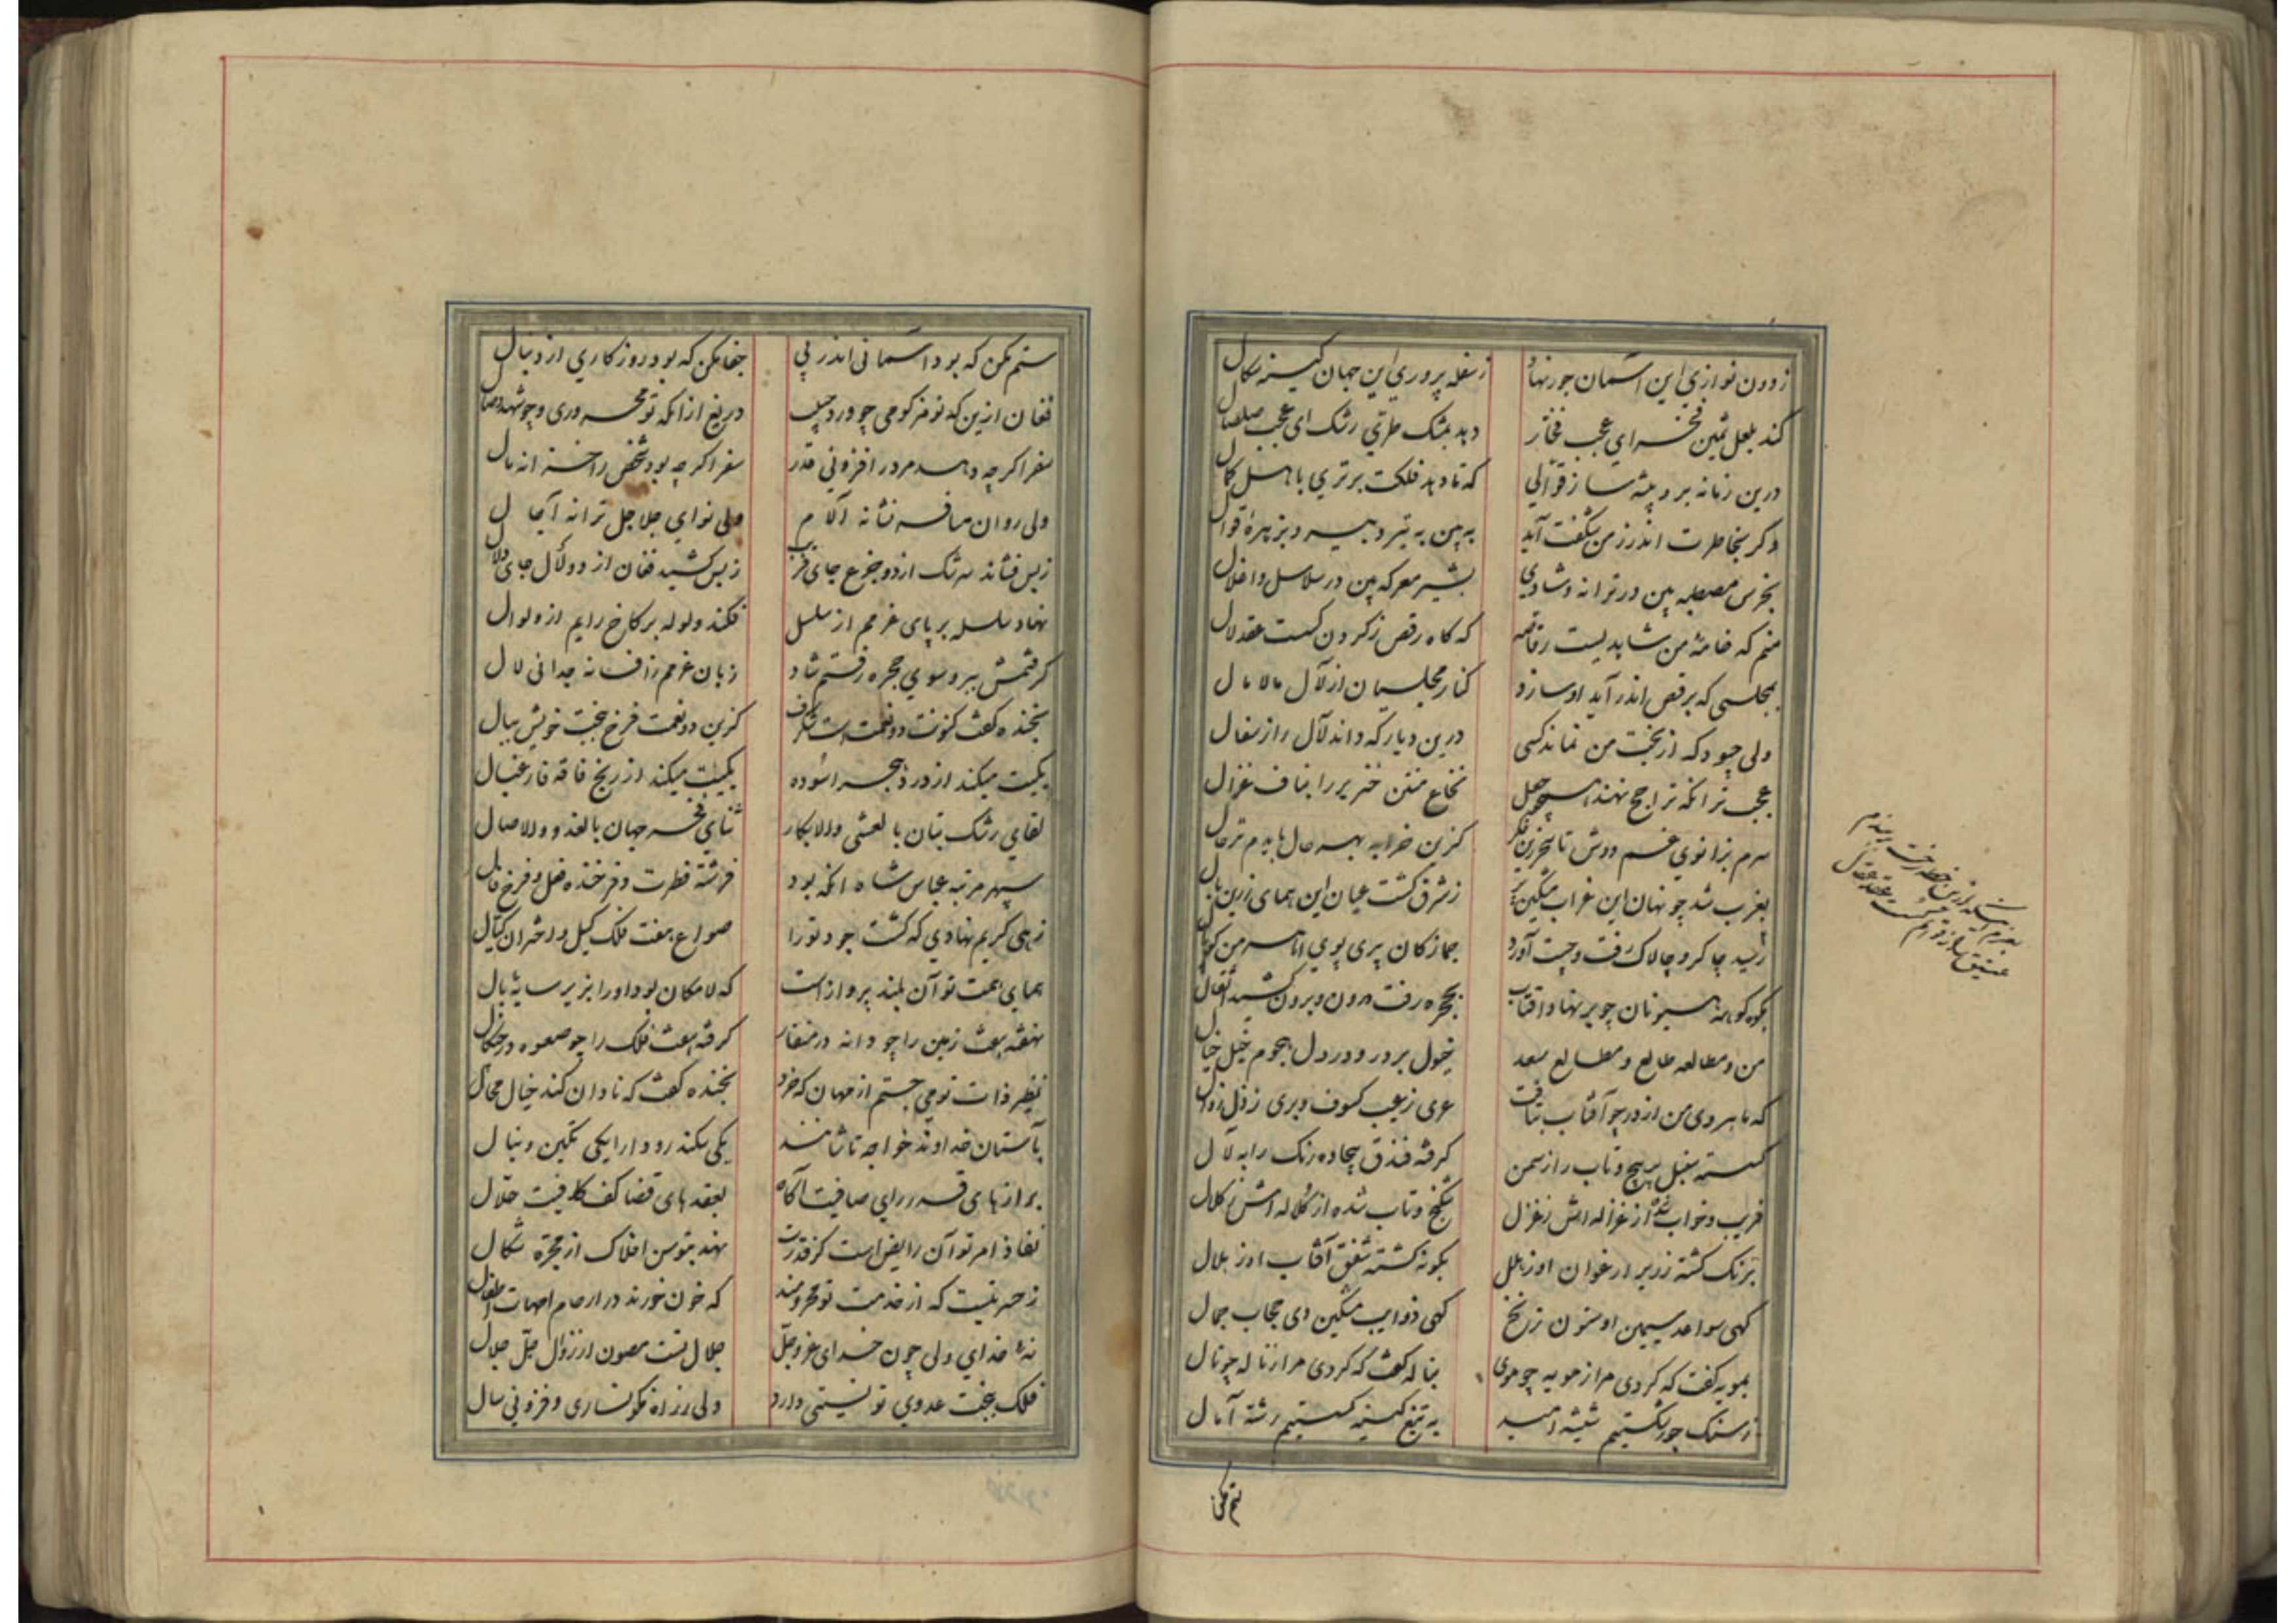 ز دون نوازی این آسمان جور نهاد ز سفله پروری این جهان کینه سکال
کند بلعل ثمین فخر ای عجب فخار دهد بمشک طری رشک ای عجب صلصال
درین زمانه برو پیشه ساز قوالی که تا دهد فلکت برتری باهل کمال
وگر بخاطرت اندرز من شگفت آید به بین به تیر دبیر و بزهره قوال
بخرس مصطبه بین در ترانه و شادی بشیر معرکه بین در سلاسل و اغلال
منم که خامهٔ من شاهدیست رقاصه که کاه رقص ز کردن کسست عقد لال
بمجلسی که برقص اندر آید او سازد کنار مجلسیان از لآل مالامال
ولی چه سود که از بخت من نماند کسی درین دیار که داند لآل را از سفال
عجب تر انکه ترا جح نهند اهل نخاع منتن خنزیر را بناف غزال
سرم بزانوی غم دوش تا سحر زین فکر کزین خرابه بهر حال بایدم ترحال
بغرب شد چو نهان این غراب مشکین پر ز شرق کشت عیان این همای زرین بال
رسید چاکر و چالاک رفت و چست آورد جمازکان پری پوی اهرمن کوپال
بکوه کوهه هیونان چو بر نهاد اقتاب بحجره رفت درون و برون کشید اثقال
من و مطالعه طالع و مطالع سعد خیول بر در و در دل هجوم خیل خیال
که ماهروی من از در چو آفتاب بتافت عری ز عیب کسوف و بری ز ذل زوال
کسسته سنبل پر پیچ و تاب را از سمن کرفته فندق بیجاده رنک را به لآل
فریب و خواب شده از غزاله اش ز غزل شکنج و تاب شده از کلاله اش ز کلال
برنک کشته زریر ارغوان او ز بلل بکونه کشته شفق آفتاب او ز هلال
کهی سواعد سیمین او ستون زنخ کهی ذوایب مشکین وی حجاب جمال
بمویه کفت که کردی مرا ز مویه چو موی بناله کفت که کردی مرا ز ناله چو نال
ز سنک جور شکستیم شیشه امید به تیغ کینه کسستیم رشته آمال
ستم مکن
ستم مکن که بود آسمانی اندر پی جفا مکن که بود روزکاری از دنبال
فغان ازین که تو هرکومی چو ورد دریغ از انکه تو مهجوری و چو شهد وصال
سفر اکر چه دهد مرد را فزونی قدر سفر اکر چه بود شخص را خزانه مال
ولی روان مسافر نشانه آلام ولی نوای جلاجل ترانه آجال
ز بس فشاند سرشک از دو جزع جای ز بس کشید فغان از دو لآل جای
نهاد سلسله بر پای عزمم از سلسل فکند ولوله بر کاخ رایم از ولوال
کرفتمش ببر و سوی حجره رفتم شاد زبان عزمم ز افسانه جدائی لال
بخنده کفت کنونت دو نعمت است شکرف کزین دو نعمت فرخ ببخت خویش ببال
یکیت میکند از درد هجر اسوده یکیت میکند از رنج فاقه فارغبال
لقای رشک بتان بالعشی والابکار ثنای فخر جهان بالغدو والاصال
سپهر مرتبه عباس شاه انکه بود فرشته فطرت و فرخنده فضل و فرخ فال
زهی کریم نهادی که کشت جود تو را صواع هفت فلک کیل و اختران کیال
همای همت تو آن بلند پرواز است که لامکان بود او را بزیر سایهٔ بال
نهفته هفت زمین را چو دانه در منقار کرفته هفت فلک را چو صعوه در چنکال
نظیر ذات تو می جستم از جهان که خرد بخنده کفت که نادان کند خیال محال
بآستان خداوند خواجه تاشانند یکی سکندر و دارا یکی تکین و ینال
برازهای قدر رای صافیت آکاه بعقدهای قضا کف کافیت حلال
نفاذ امر تو آن رایض است کز قدرت نهد بتوسن افلاک از مجره شکال
ز حسرتیست که از خدمت تو محرومند که خون خورند در ارحام امهات اطفال
نهٔ خدای ولی چون خدای عز و جل جلال تست مصون از زوال جل جلال
فلک ببخت عدوی تو نسبتی دارد ولی ز راه نکونساری و فزونی سال